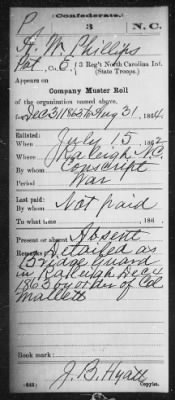 Confederate.
P 3 N.C.
H. W. Phillips
Pvt., Co. E, 3 Reg't North Carolina Inf.
(State Troops.)
Appears on
Company Muster Roll
of the organization named above,
for Dec 31 1863 to Aug 31, 1864
Enlisted:
When July 15, 1862
Where Raleigh N.C.
By whom Conscript
Period War
Last paid:
By whom Not paid
To what time , 186 .
Present or absent Absent
Remarks: Detailed as
Bridge Guard
in Raleigh Dec 4
1863 by order of Col
Mallett
Book mark:
J. B. Hyatt
(642) Copyist.